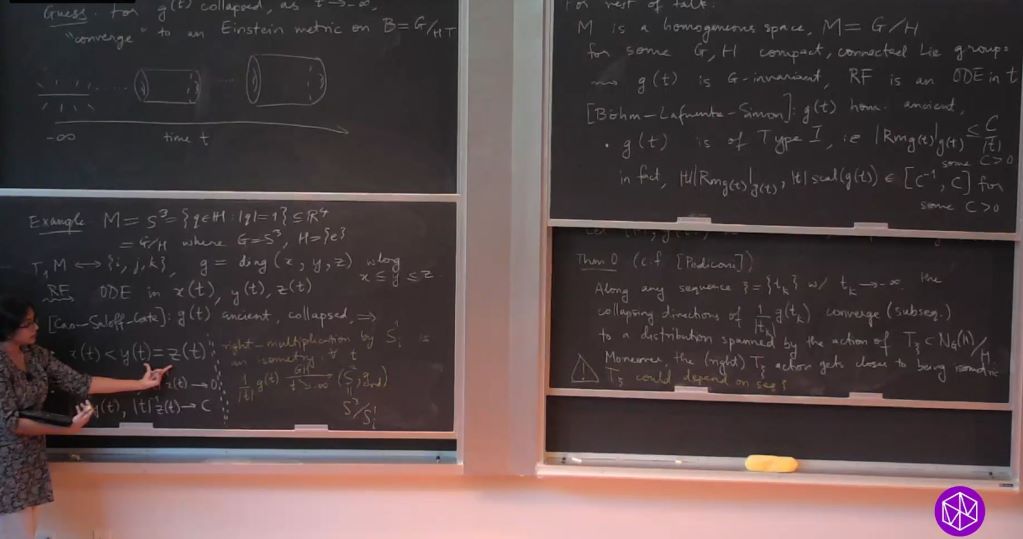 Guess: For g(t) collapsed, as t→-∞,
"converge" to an Einstein metric on B=G/HT
-∞ time t
Example M = S³ = {q∈H : |q|=1} ⊆ R⁴
= G/H where G=S³, H={e}
T₁M ↔ {i, j, k}, g = diag(x, y, z) wlog x ≤ y ≤ z
RF ⇝ ODE in x(t), y(t), z(t)
[Cao-Saloff-Coste]: g(t) ancient, collapsed, ⇒
x(t) < y(t) = z(t)
(t) → 0
(t), |t|⁻¹z(t) → C
right-multiplication by S¹ᵢ is
an isometry ∀ t
1/|t| g(t) GH t→-∞ (S², g_rnd)
S³/S¹ᵢ
For rest of talk:
M is a homogeneous space, M = G/H
for some G, H compact, connected Lie groups
⇝ g(t) is G-invariant, RF is an ODE in t
[Böhm-Lafuente-Simon]: g(t) hom. ancient,
• g(t) is of Type I, ie |Rm g(t)|g(t) ≤ C/|t|
some C>0
in fact, |t||Rm g(t)|g(t), |t| scal(g(t)) ∈ [C⁻¹, C] for
some C>0
Thm 0 (cf [Pediconi])
Along any sequence ξ = {t_k} w/ t_k → -∞, the
collapsing directions of 1/|t_k| g(t_k) converge (subseq.)
to a distribution spanned by the action of T_ξ ⊂ N_G(H)/H
Moreover, the (right) T_ξ action gets closer to being isometric
! T_ξ could depend on seq ξ